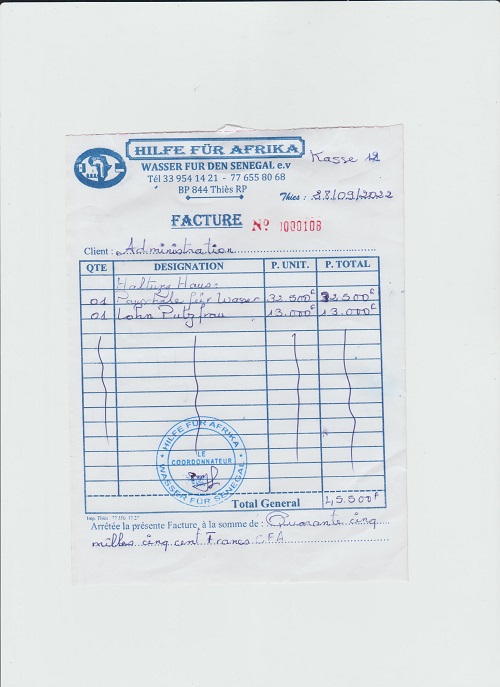 HILFE FÜR AFRIKA
Kasse 12
WASSER FUR DEN SENEGAL e.v
Tél 33 954 14 21 - 77 655 80 68
BP 844 Thiès RP
Thies : 28/09/2022
FACTURE Nº 0000108
Client : Administration
QTE DESIGNATION P. UNIT. P. TOTAL
Haltung Haus:
01 Pauschale für Wasser 32.500 32500
01 Lohn Putzfrau 13.000 13.000
HILFE FÜR AFRIKA
LE COORDONNATEUR
WASSER FÜR SENEGAL
Total General 45.500F
Arrêtée la présente Facture, à la somme de : Quarante cinq
milles cinq cent Francs CFA